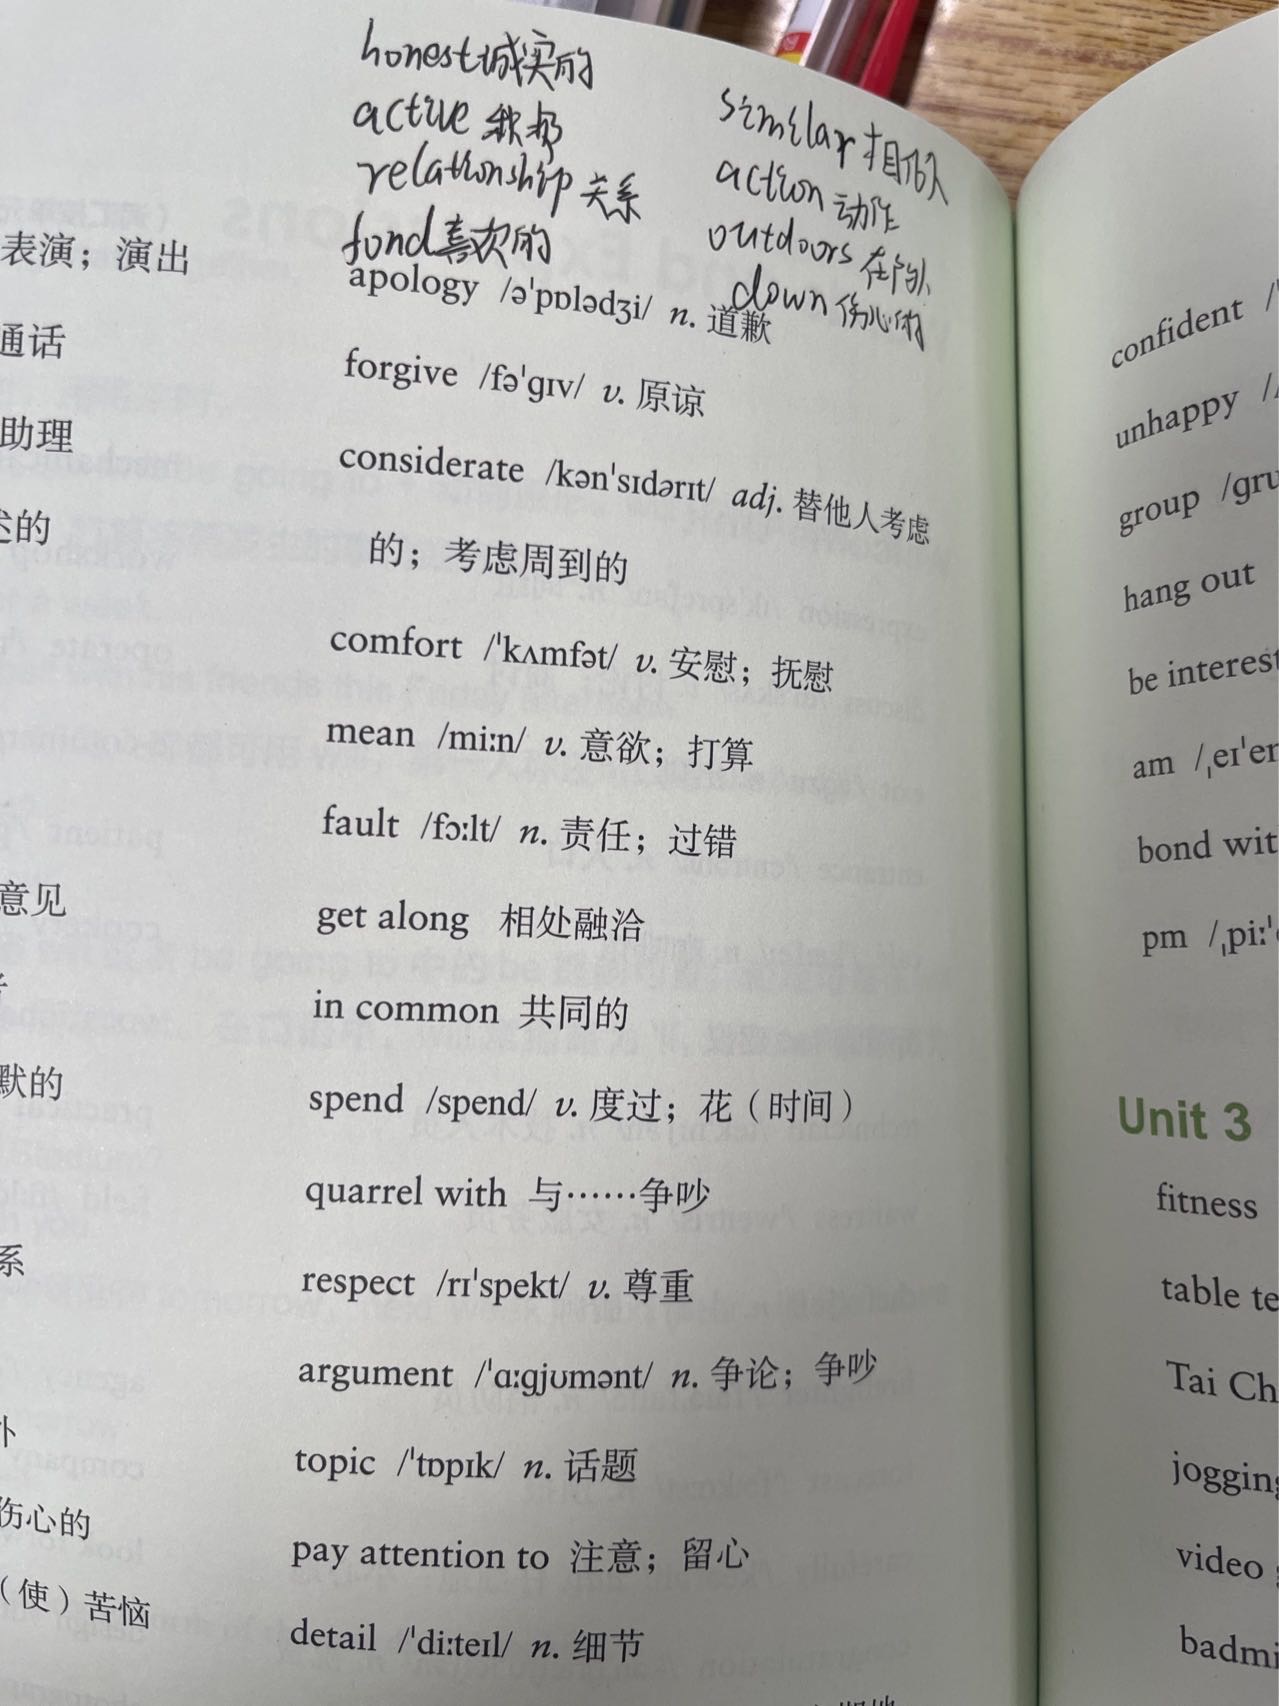 honest诚实的
active 积极
relationship 关系
fond喜欢的
similar 相似
action 动作
outdoors 在户外
down 伤心的
表演；演出
通话
助理
的
意见
默的
系
外
伤心的
（使）苦恼
apology /əˈpɒlədʒi/ n. 道歉
forgive /fəˈɡɪv/ v. 原谅
considerate /kənˈsɪdərɪt/ adj. 替他人考虑
的；考虑周到的
comfort /ˈkʌmfət/ v. 安慰；抚慰
mean /miːn/ v. 意欲；打算
fault /fɔːlt/ n. 责任；过错
get along 相处融洽
in common 共同的
spend /spend/ v. 度过；花（时间）
quarrel with 与……争吵
respect /rɪˈspekt/ v. 尊重
argument /ˈɑːɡjʊmənt/ n. 争论；争吵
topic /ˈtɒpɪk/ n. 话题
pay attention to 注意；留心
detail /ˈdiːteɪl/ n. 细节
confident /
unhappy /
group /ɡru
hang out
be interest
am /ˌeɪˈe
bond wit
pm /ˌpiːˈ
Unit 3
fitness
table te
Tai Ch
jogging
video
badmi